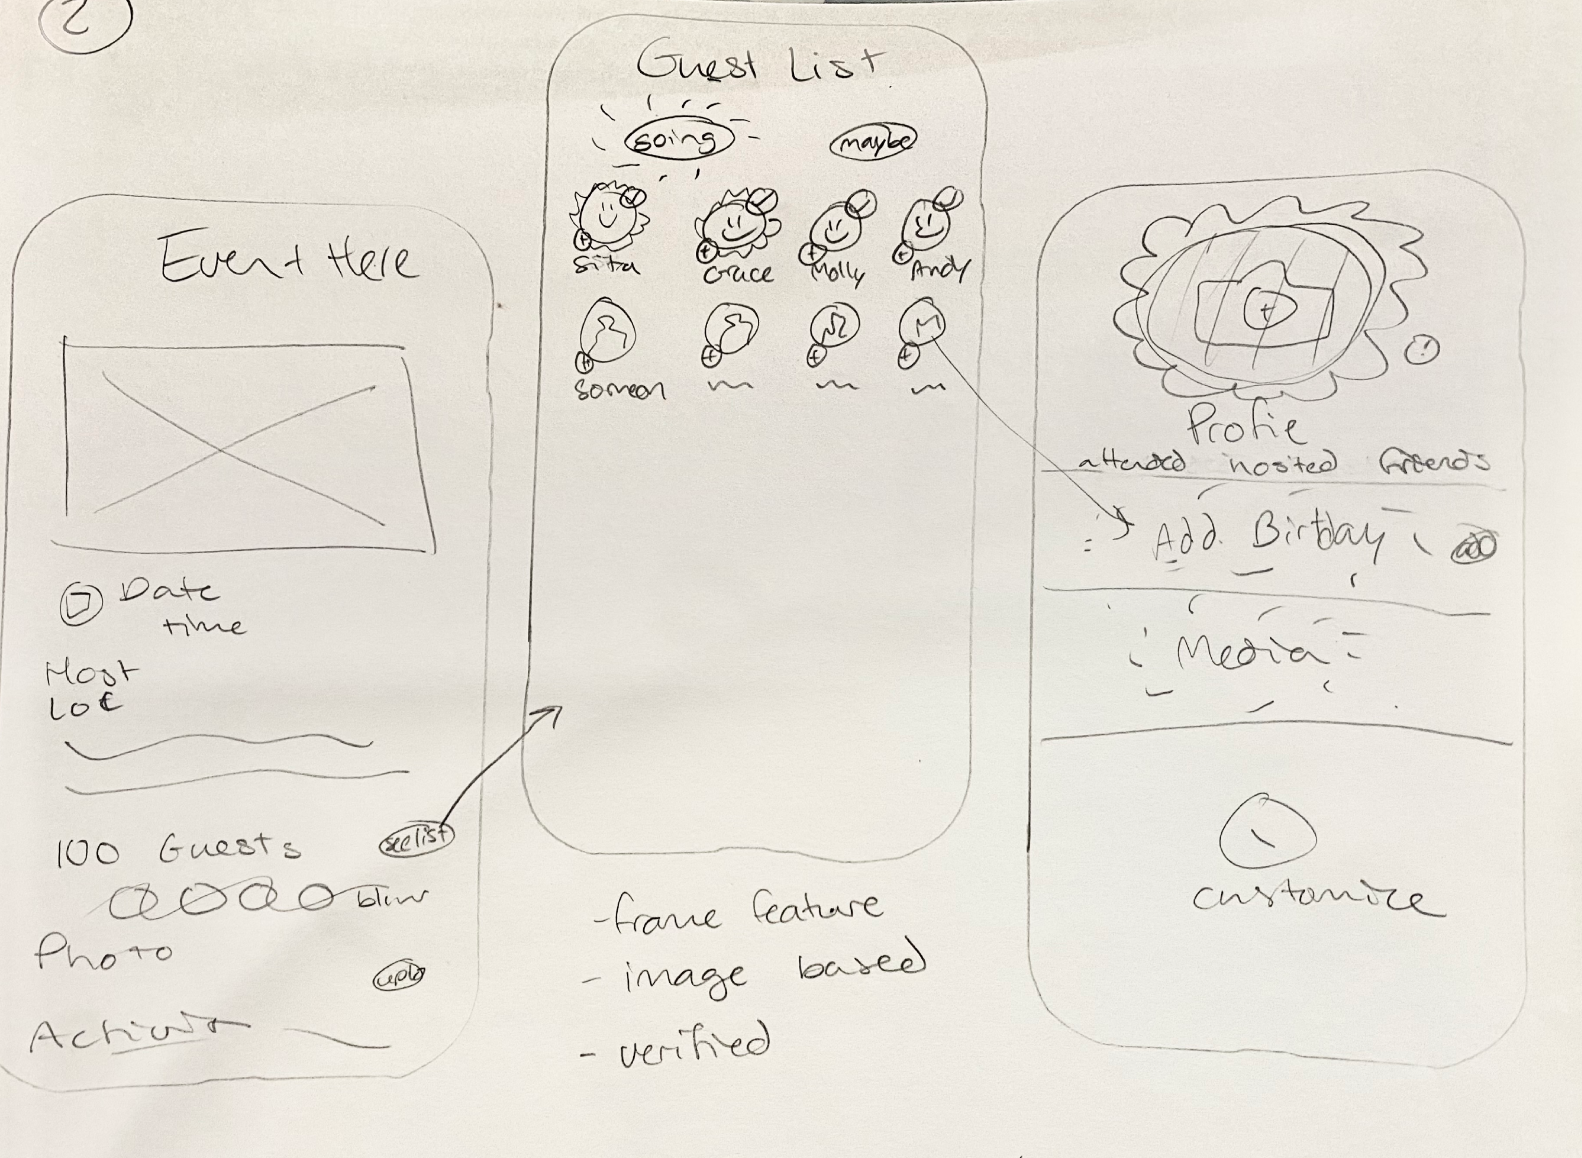 2
Event Here
Date
time
Host
Loc
100 Guests
see list
blur
Photo
Guest List
going
maybe
Sita
Grace
Molly
Andy
Someon
- frame feature
- image based
- verified
!
Profie
attended hosted friends
Add Birtday
add
Media
customize